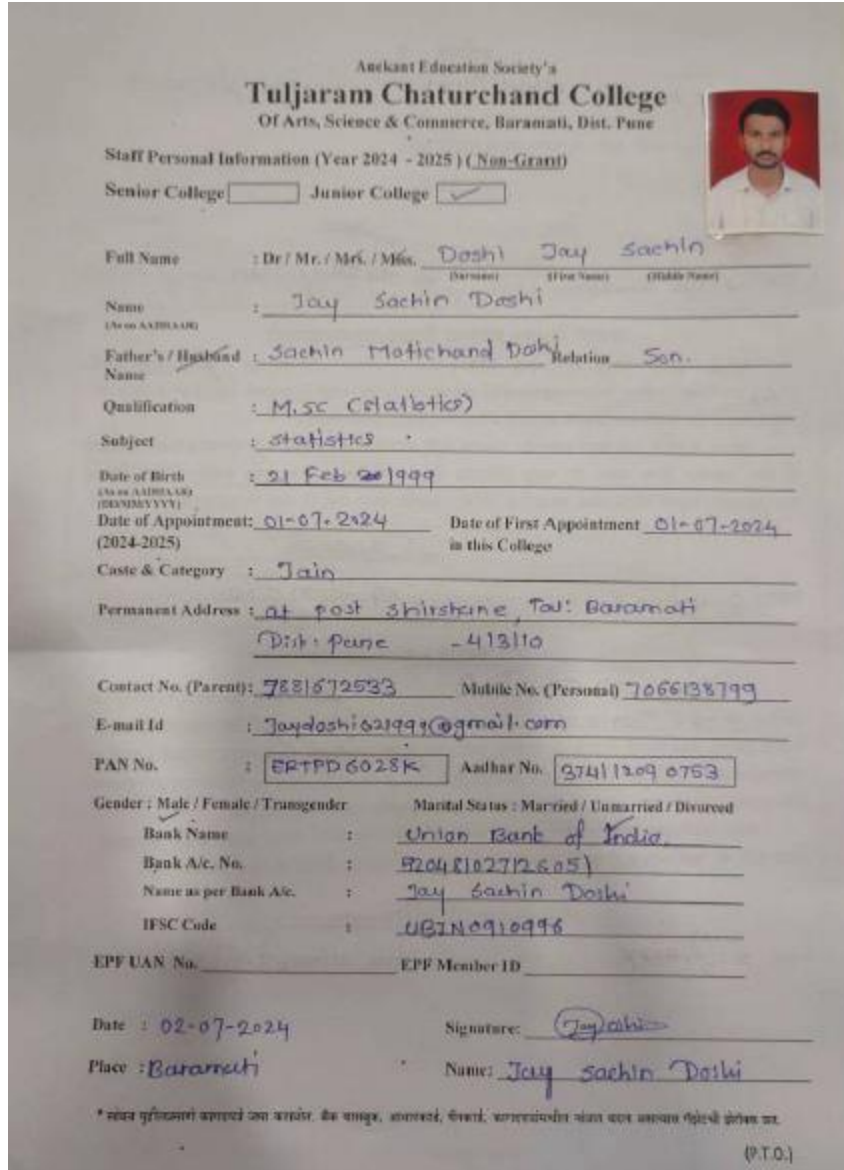 Anekant Education Society's
Tuljaram Chaturchand College
Of Arts, Science & Commerce, Baramati, Dist. Pune
Staff Personal Information (Year 2024 - 2025 ) ( Non-Grant)
Senior College Junior College ✓
Full Name : Dr / Mr. / Mrs. / Miss. Doshi Jay Sachin
(Surname) (First Name) (Middle Name)
Name : Jay Sachin Doshi
(As on AADHAAR)
Father's / Husband : Sachin Motichand Doshi Relation Son.
Name
Qualification : M.sc (statistics)
Subject : statistics
Date of Birth : 21 Feb 1999
(As on AADHAAR)
(DD/MM/YYYY)
Date of Appointment: 01-07-2024 Date of First Appointment 01-07-2024
(2024-2025) in this College
Caste & Category : Jain
Permanent Address : at post Tal: Baramati
Dist: Pune - 413110
Contact No. (Parent): 7881672533 Mobile No. (Personal) 7066138799
E-mail Id : Jaydoshi621999@gmail.com
PAN No. : ERTPD6028K Aadhar No. 3741 1209 0753
Gender : Male / Female / Transgender Marital Status : Married / Unmarried / Divorced
Bank Name : Union Bank of India.
Bank A/c. No. :
Name as per Bank A/c. : Jay Sachin Doshi
IFSC Code : UBIN0910996
EPF UAN No. EPF Member ID
Date : 02-07-2024 Signature: Jay Doshi
Place : Baramati Name: Jay Sachin Doshi
(P.T.O.)